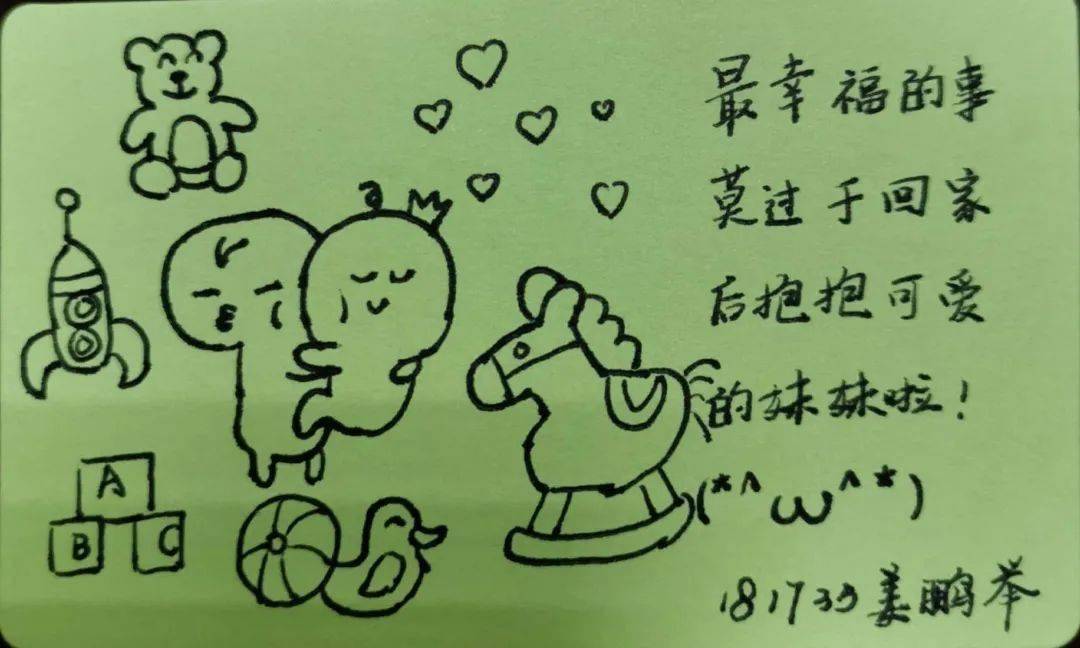 最幸福的事
莫过于回家
后抱抱可爱
的妹妹啦！
(*^ω^*)
181733姜鹏举
A
B C